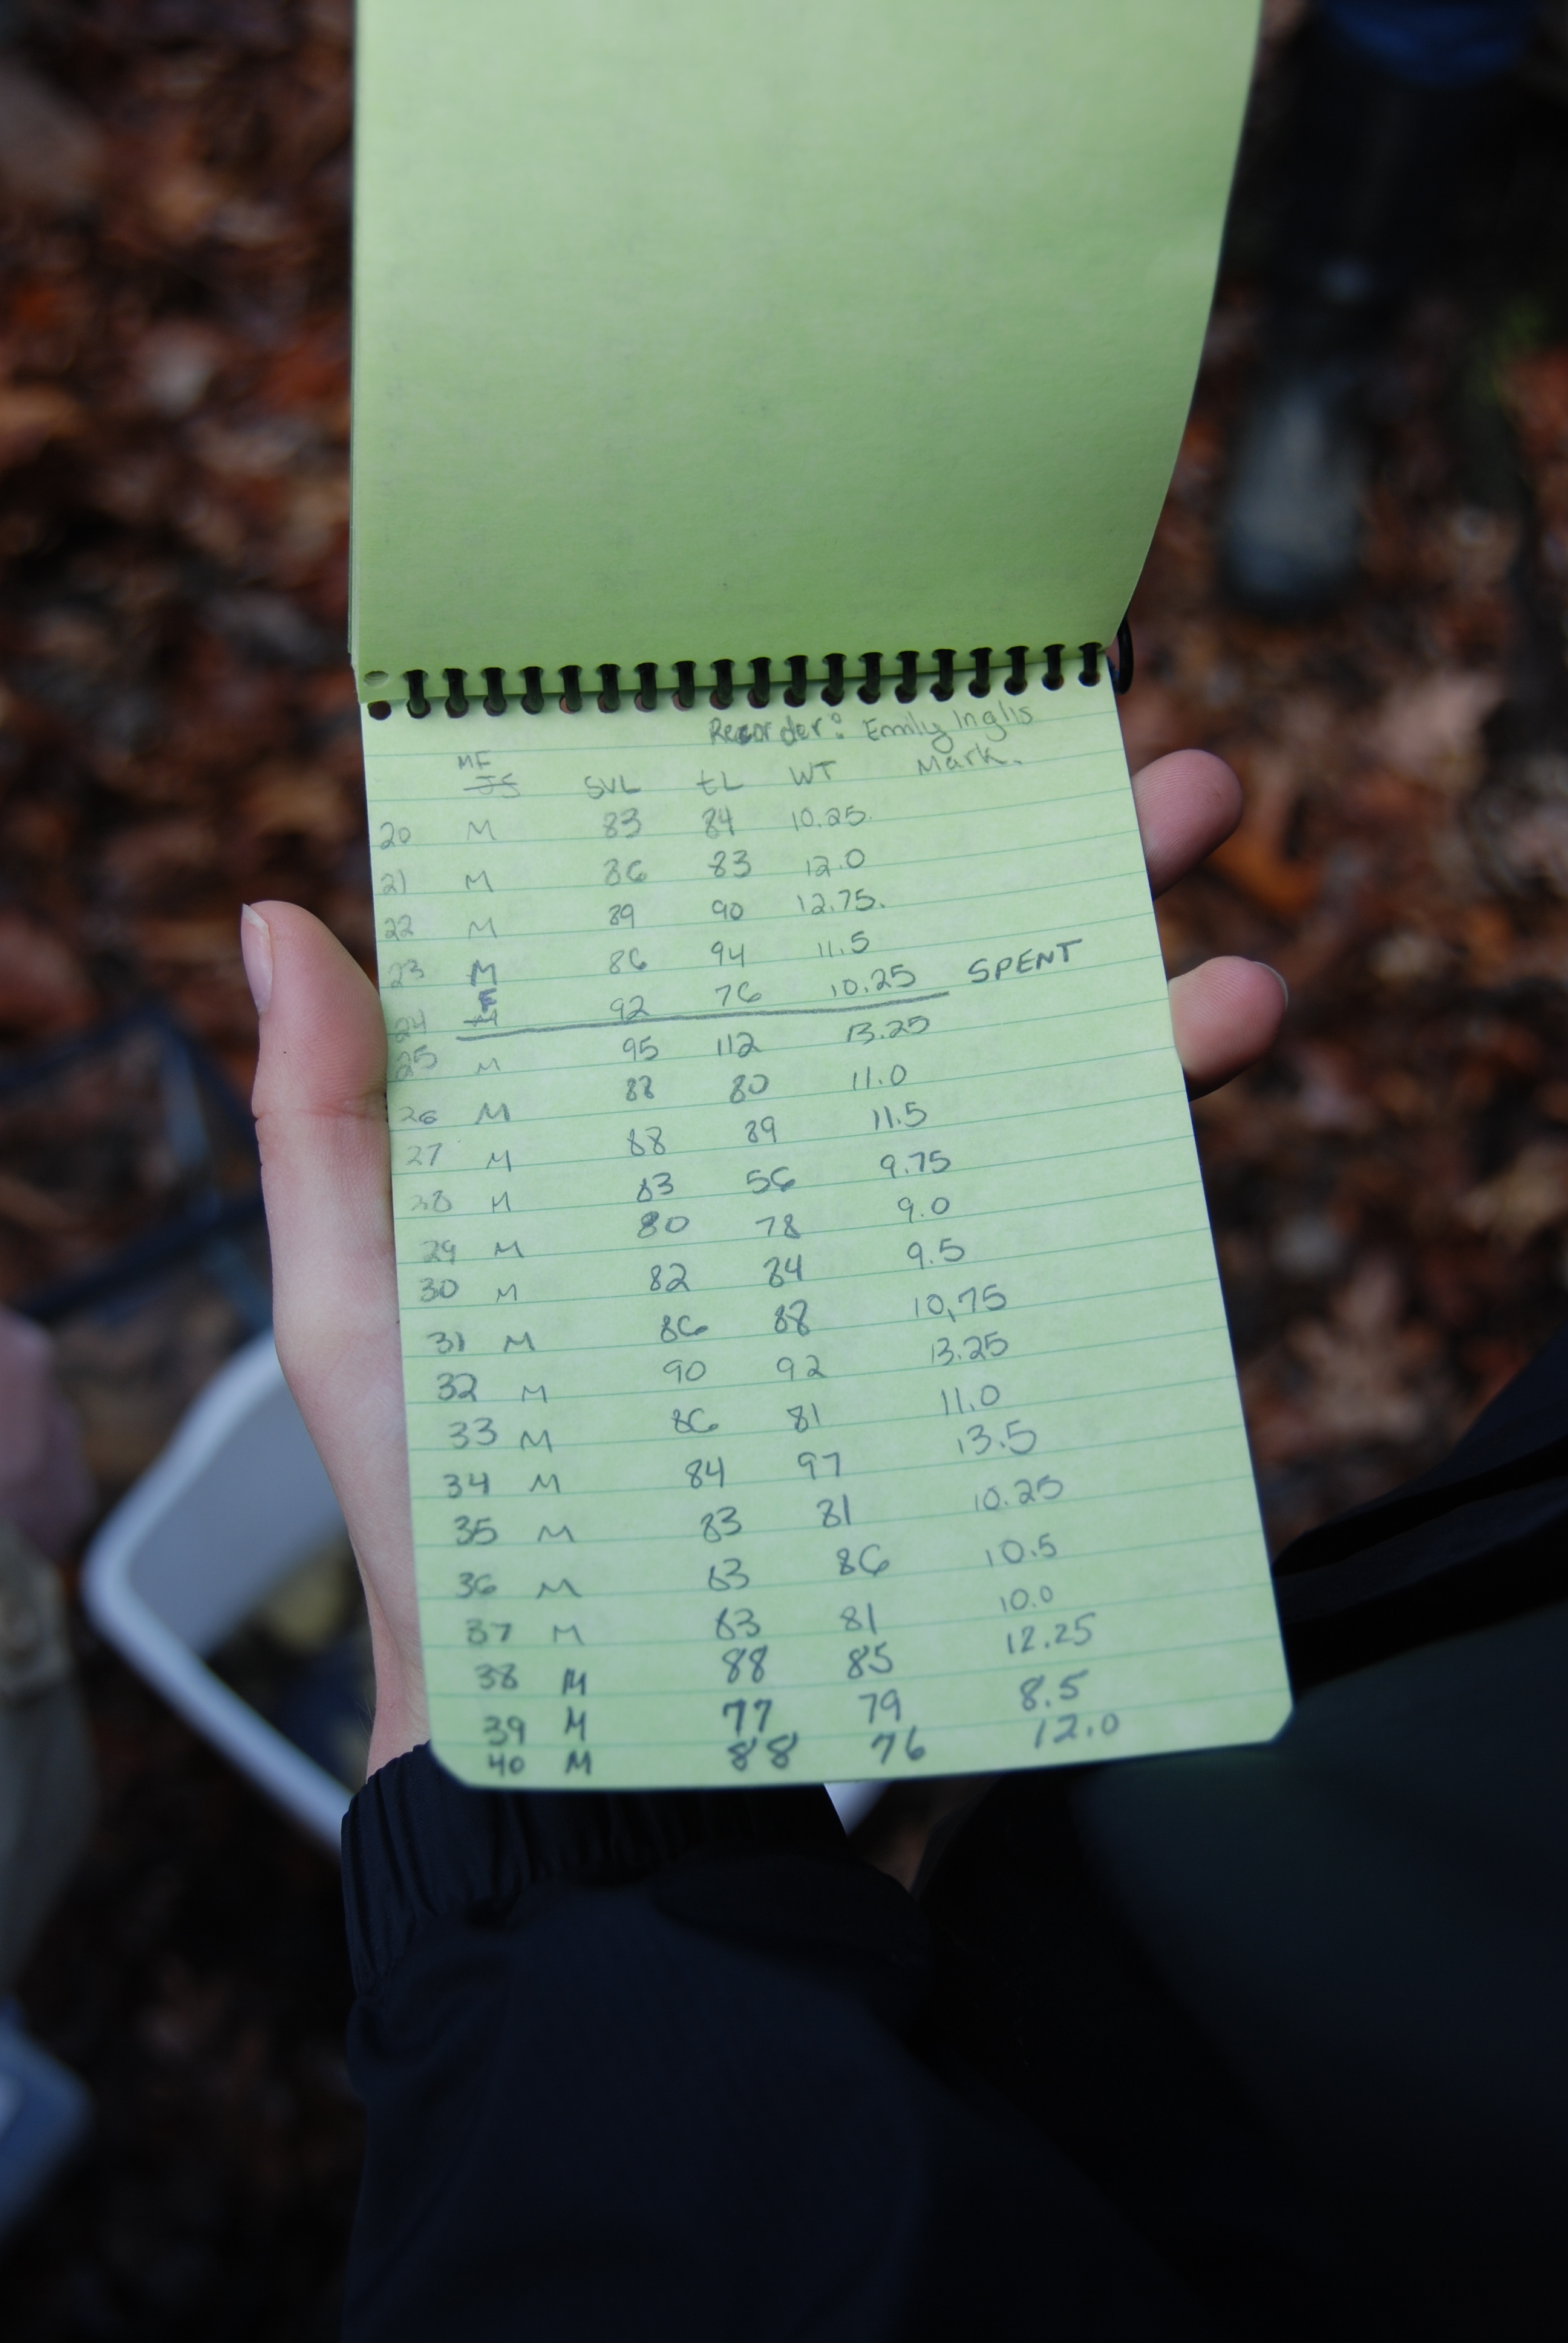 Recorder: Emily Inglis
MF JS SVL tL WT Mark.
20 M 83 84 10.25.
21 M 86 83 12.0
22 M 89 90 12.75.
23 M 86 94 11.5
24 F 92 76 10.25 SPENT
25 M 95 112 13.25
26 M 88 80 11.0
27 M 88 89 11.5
28 M 83 56 9.75
29 M 80 78 9.0
30 M 82 84 9.5
31 M 86 88 10,75
32 M 90 92 13.25
33 M 86 81 11.0
34 M 84 97 13.5
35 M 83 81 10.25
36 M 83 86 10.5
37 M 83 81 10.0
38 M 88 85 12.25
39 M 77 79 8.5
40 M 88 76 12.0